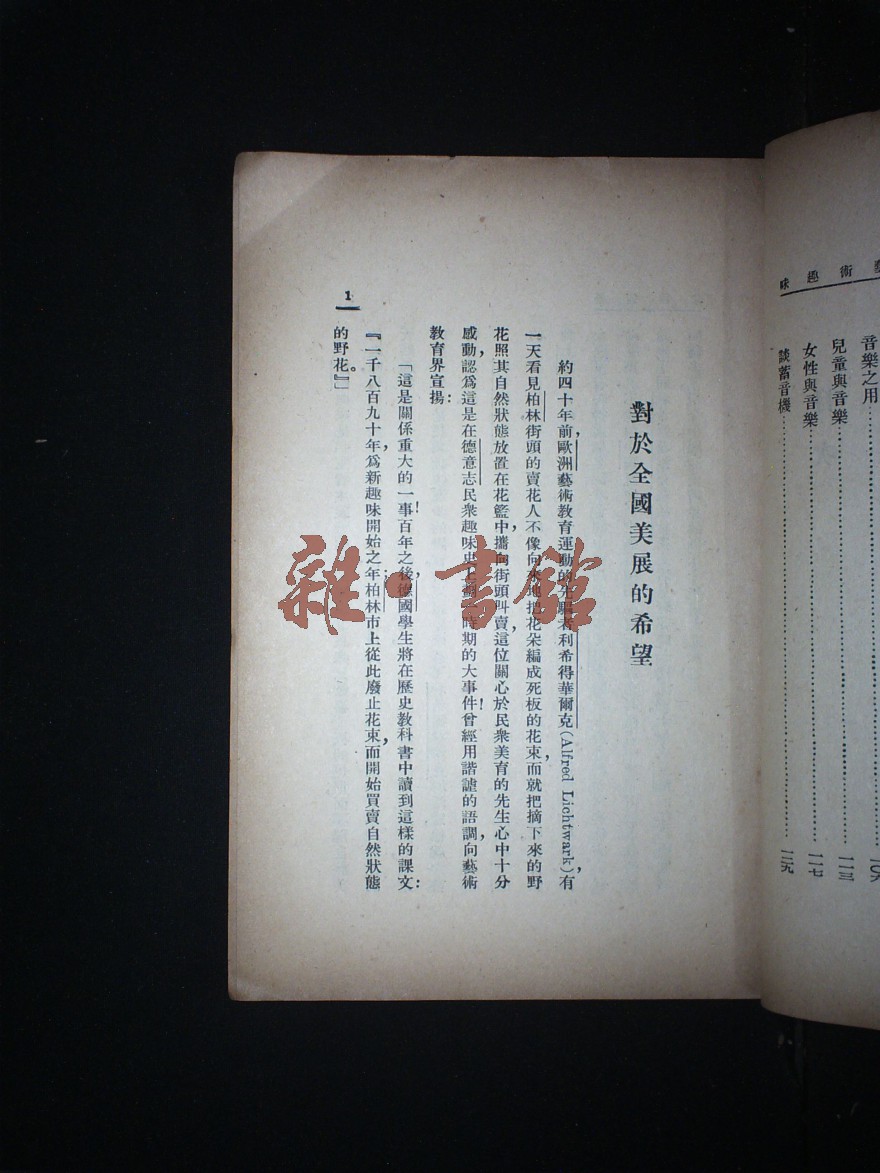 術趣味
音樂之用………………
兒童與音樂………………一一三
女性與音樂………………一一七
談蓄音機………………一二九
對於全國美展的希望
約四十年前，歐洲藝術教育運動的先驅者利希得華爾克(Alfred Lichtwark)，有
一天看見柏林街頭的賣花人不像向來地把花朵編成死板的花束，而就把摘下來的野
花照其自然狀態放置在花籃中，攜向街頭叫賣，這位關心於民衆美育的先生心中十分
感動，認爲這是在德意志民衆趣味史上劃一時期的大事件！曾經用諧謔的語調，向藝術
教育界宣揚：
「這是關係重大的一事！百年之後，德國學生將在歷史教科書中讀到這樣的課文：
『一千八百九十年，爲新趣味開始之年，柏林市上從此廢止花束，而開始買賣自然狀態
的野花。』」
1
雜·書館